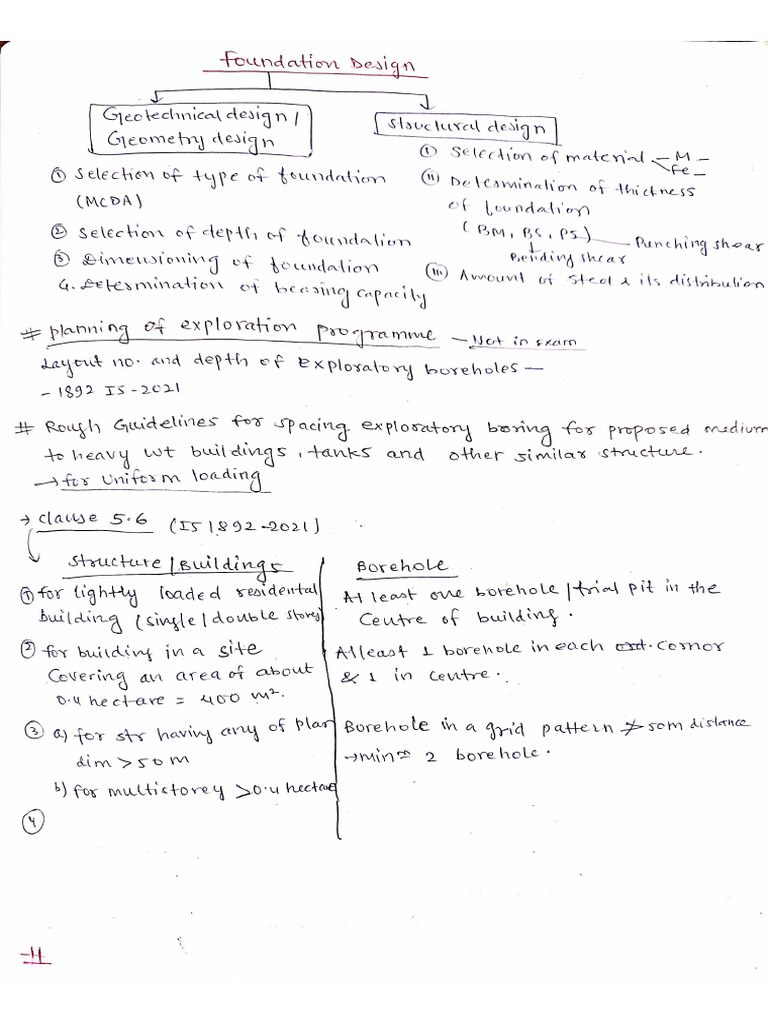 Foundation Design
Geotechnical design /
Geometry design
① Selection of type of foundation
(MCDA)
② Selection of depth of foundation
③ Dimensioning of foundation
4. Determination of bearing capacity
Structural design
① Selection of material – M –
Fe –
② Determination of thickness
of foundation
(BM, BS, PS) Punching shear
Bending shear
③ Amount of steel & its distribution
# Planning of exploration programme – Not in exam
Layout no. and depth of exploratory boreholes –
- 1892 IS - 2021
# Rough Guidelines for spacing exploratory boring for proposed medium
to heavy wt buildings, tanks and other similar structure.
→ for Uniform loading
→ clause 5.6 (IS 1892-2021)
Structure / Buildings
Borehole
① for lightly loaded residental
building (single / double storey)
At least one borehole / trial pit in the
Centre of building.
② for building in a site
Covering an area of about
0.4 hectare = 400 m².
Atleast 1 borehole in each cornor
& 1 in centre.
③ a) for str having any of plan
dim > 50 m
b) for multistorey > 0.4 hectare
Borehole in a grid pattern ≯ 50m distance
→ min<sup>m</sup> 2 borehole.
④